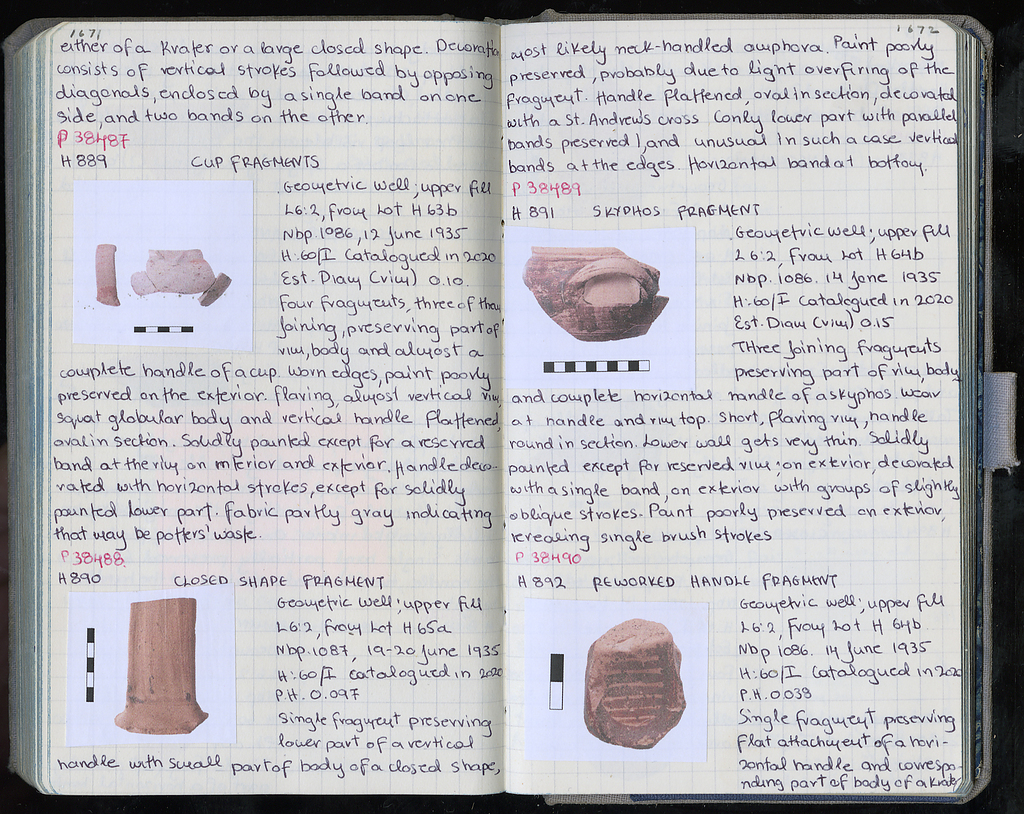 1671
either of a Krater or a large closed shape. Decoration
consists of vertical strokes followed by opposing
diagonals, enclosed by a single band on one
side, and two bands on the other.
P 38487
H 889 CUP FRAGMENTS
Geometric well; upper fill
L6:2, from Lot H 63b
Nbp. 1086, 12 June 1935
H:60/I Catalogued in 2020
Est. Diam (rim) 0.10.
Four fragments, three of them
joining, preserving part of
rim, body and almost a
complete handle of a cup. Worn edges, paint poorly
preserved on the exterior. Flaring, almost vertical rim,
squat globular body and vertical handle flattened,
oval in section. Solidly painted except for a reserved
band at the rim on interior and exterior. Handle deco-
rated with horizontal strokes, except for solidly
painted lower part. Fabric partly gray indicating
that may be potters' waste.
P 38488.
H 890 CLOSED SHAPE FRAGMENT
Geometric well; upper fill
L6:2, from Lot H 65a
Nbp. 1087, 19-20 June 1935
H:60/I Catalogued in 2020
P.H. 0.097
Single fragment preserving
lower part of a vertical
handle with small part of body of a closed shape,
1672
most likely neck-handled amphora. Paint poorly
preserved, probably due to light overfiring of the
fragment. Handle flattened, oval in section, decorated
with a St. Andrews cross (only lower part with parallel
bands preserved), and unusual in such a case vertical
bands at the edges. Horizontal band at bottom.
P 38489
H 891 SKYPHOS FRAGMENT
Geometric well; upper fill
L 6:2, from Lot H 64b
Nbp. 1086. 14 June 1935
H:60/I Catalogued in 2020
Est. Diam (rim) 0.15
Three joining fragments
preserving part of rim, body
and complete horizontal handle of a skyphos. Wear
at handle and rim top. Short, flaring rim, handle
round in section. Lower wall gets very thin. Solidly
painted except for reserved rim; on exterior, decorated
with a single band, on exterior with groups of slightly
oblique strokes. Paint poorly preserved on exterior,
revealing single brush strokes
P 38490
H 892 REWORKED HANDLE FRAGMENT
Geometric well; upper fill
L6:2, from Lot H 64b.
Nbp 1086. 14 June 1935
H:60/I Catalogued in 2020
P.H. 0.038
Single fragment preserving
flat attachment of a hori-
zontal handle and correspo-
nding part of body of a Krater